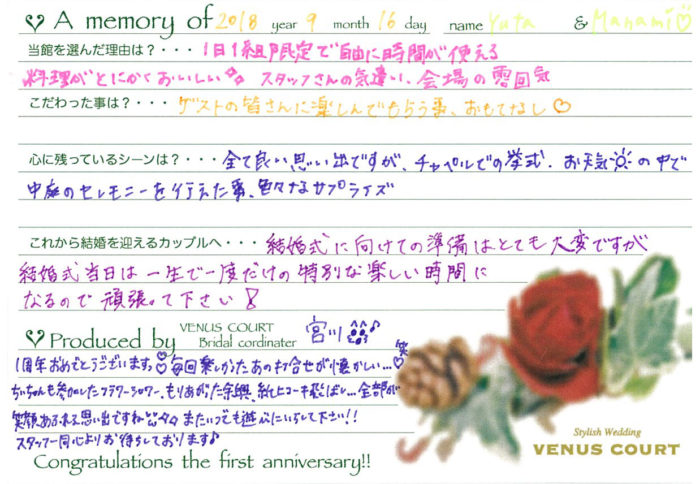 A memory of 2018 year 9 month 16 day name Yuta & Manami♡
当館を選んだ理由は？・・・1日1組限定で自由に時間が使える
料理がとにかくおいしい スタッフさんの気遣い、会場の雰囲気
こだわった事は？・・・ゲストの皆さんに楽しんでもらう事、おもてなし♡
心に残っているシーンは？・・・全て良い思い出ですが、チャペルでの挙式、お天気の中で
中庭のセレモニーを行えた事、色々なサプライズ
これから結婚を迎えるカップルへ・・・結婚式に向けての準備はとても大変ですが
結婚式当日は一生で一度だけの特別な楽しい時間に
なるので頑張って下さい！
Produced by VENUS COURT Bridal cordinater 宮川♪
1周年おめでとうございます。♡毎回楽しかったあの打合せが懐かしい…笑
ちぃちゃんも参加したフラワーシャワー、もりあがった余興、紙ヒコーキ飛ばし…全部が
笑顔あふれる思い出ですね またいつでも遊びにいらして下さい!!
スタッフ一同心よりお待ちしております♪
Congratulations the first anniversary!!
Stylish Wedding
VENUS COURT